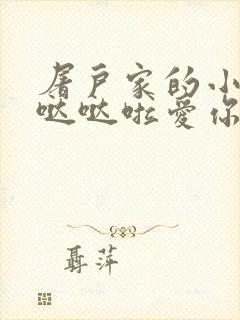 屠户家的小
哒哒啦爱你
聂萍